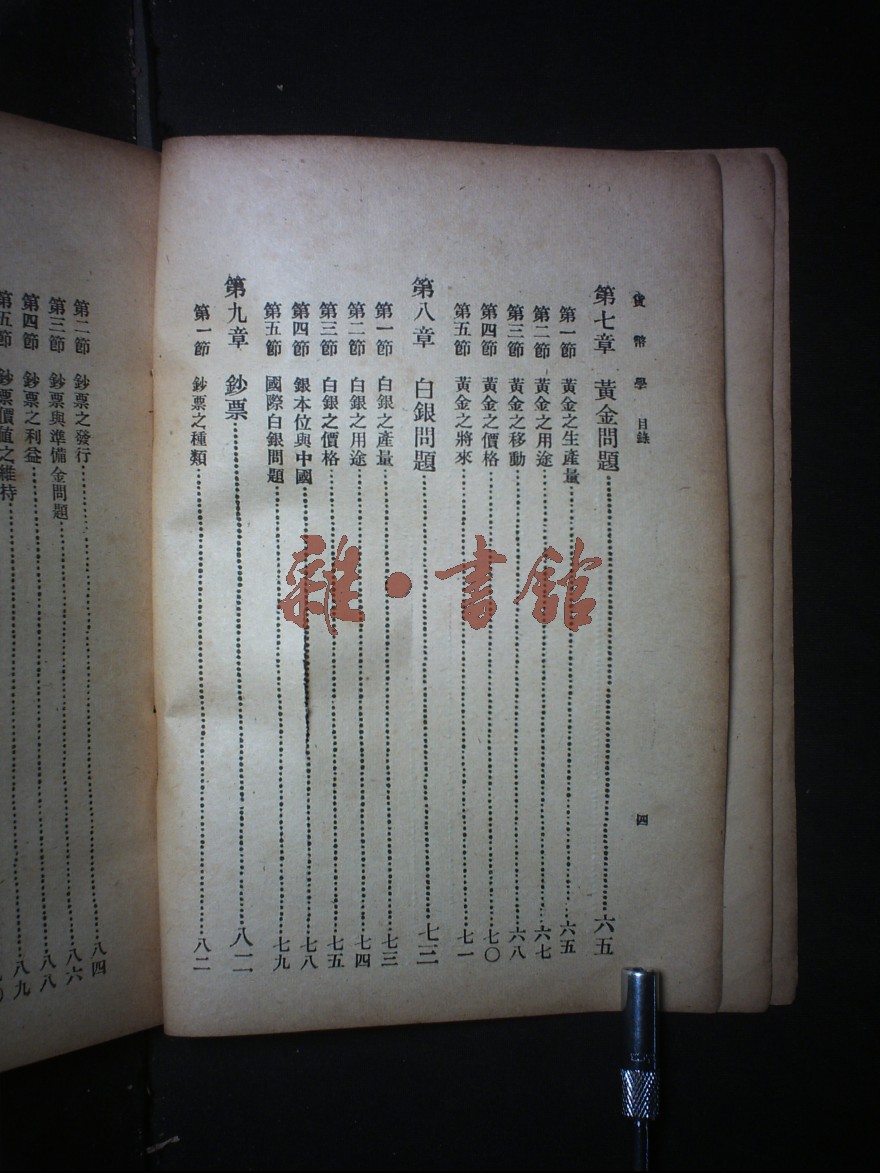 貨幣學 目錄 四
第七章 黃金問題……六五
第一節 黃金之生產量……六五
第二節 黃金之用途……六七
第三節 黃金之移動……六八
第四節 黃金之價格……七〇
第五節 黃金之將來……七一
第八章 白銀問題……七三
第一節 白銀之產量……七三
第二節 白銀之用途……七四
第三節 白銀之價格……七五
第四節 銀本位與中國……七八
第五節 國際白銀問題……七九
第九章 鈔票……八二
第一節 鈔票之種類……八二
第二節 鈔票之發行……八四
第三節 鈔票與準備金問題……八六
第四節 鈔票之利益……八八
第五節 鈔票價值之維持……八九
雜·書館